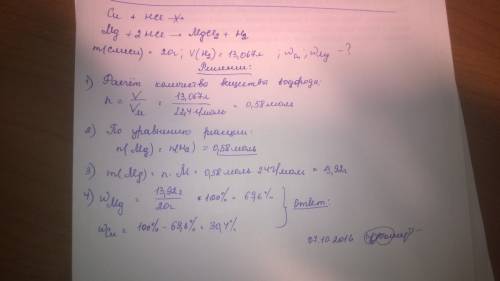 Cu + HCl -x→
Mg + 2HCl → MgCl₂ + H₂
m(смеси) = 20г; V(H₂) = 13,067л ; ω Cu, ω Mg - ?
Решение:
1) Расчёт количества вещества водорода:
n = V/Vм = 13,067л/22,4 л/моль = 0,58 моль
2) По уравнению реакции:
n(Mg) = n(H₂) = 0,58 моль
3) m(Mg) = n · M = 0,58 моль · 24 г/моль = 13,92г
4) ω Mg = 13,92г/20г * 100% = 69,6%
ω Cu = 100% - 69,6% = 30,4%
Ответ:
27.10.2016